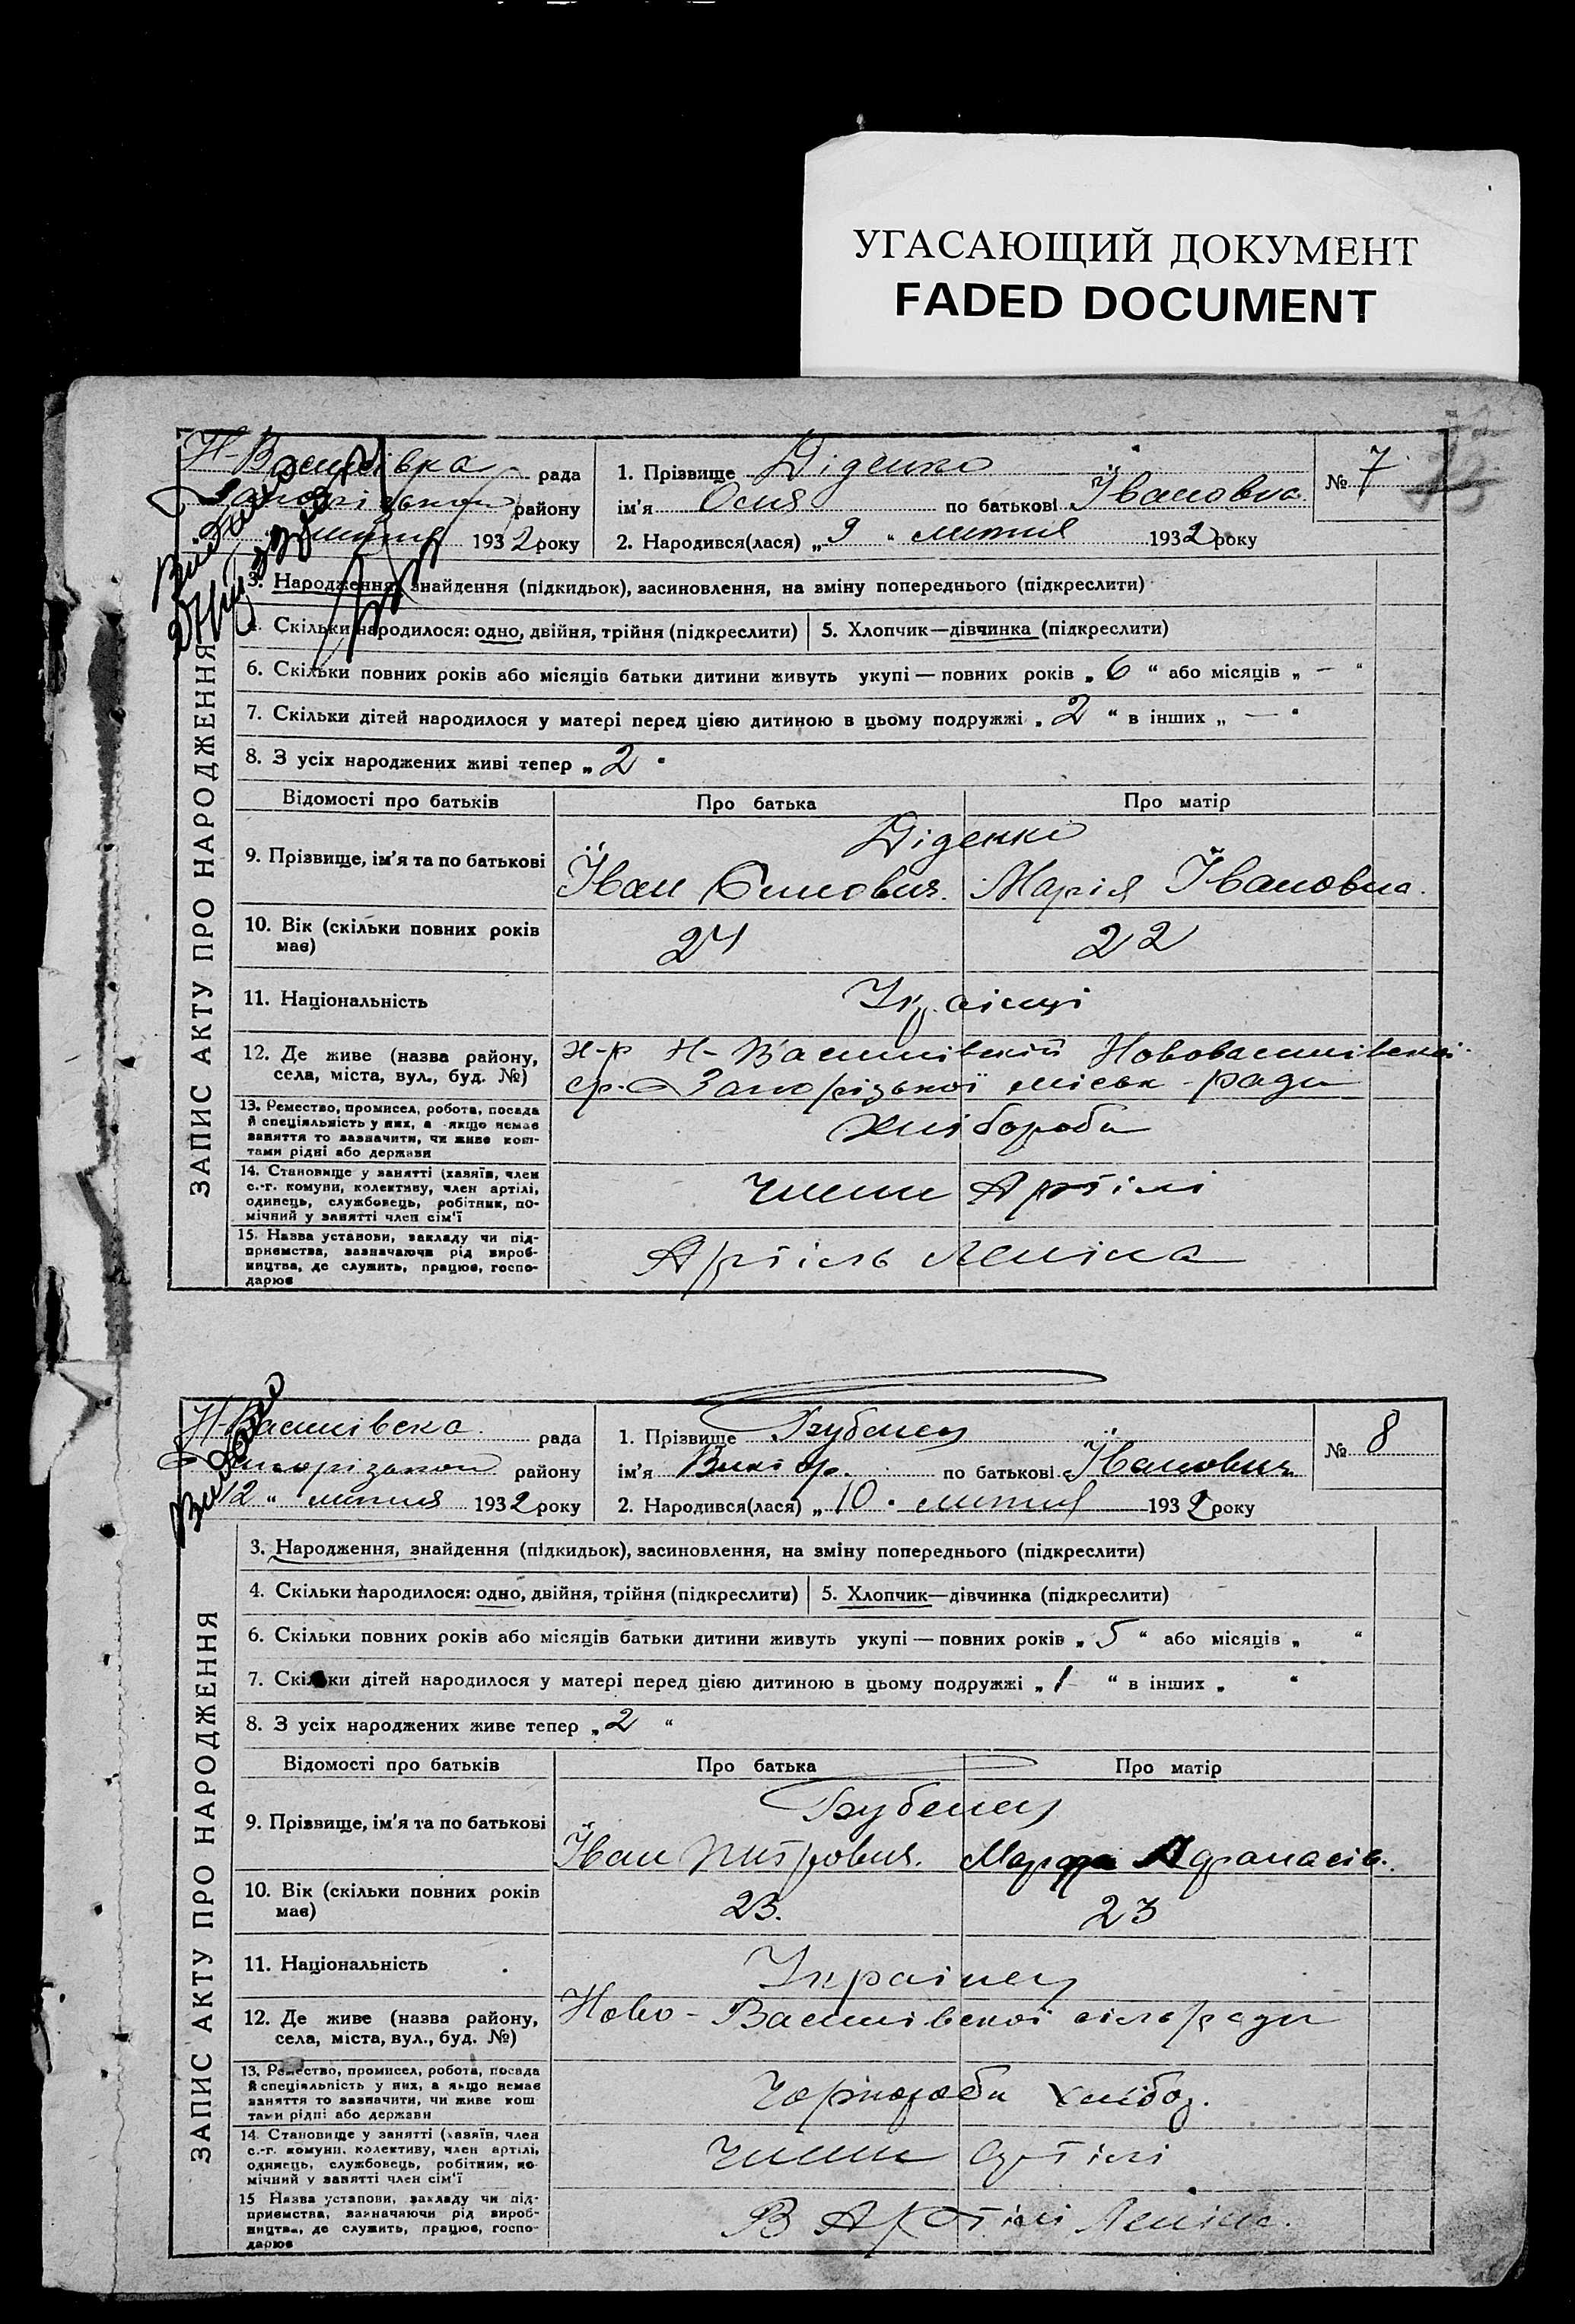 УГАСАЮЩИЙ ДОКУМЕНТ
FADED DOCUMENT
Н-Василівка рада
району
193 2 року
1. Прізвище Діденко
ім'я по батькові Івановна
2. Народився(лася) „ 9 “ лютня 193 2 року
№ 7
ЗАПИС АКТУ ПРО НАРОДЖЕННЯ
3. Народження, знайдення (підкидьок), засиновлення, на зміну попереднього (підкреслити)
4. Скільки народилося: одно, двійня, трійня (підкреслити)
5. Хлопчик—дівчинка (підкреслити)
6. Скільки повних років або місяців батьки дитини живуть укупі — повних років „ 6 “ або місяців „ — “
7. Скільки дітей народилося у матері перед цією дитиною в цьому подружжі „ 2 “ в інших „ — “
8. З усіх народжених живі тепер „ 2 “
Відомості про батьків Про батька Про матір
Діденко
9. Прізвище, ім'я та по батькові
Іван Марія Івановна.
10. Вік (скільки повних років
має)
24 22
11. Національність
Українці
12. Де живе (назва району,
села, міста, вул., буд. №)
х-р Н-Василівкій Нововасилівської
ср. Запорізької міськ-ради
13. Ремество, промисел, робота, посада
й спеціяльність у них, а якщо немає
заняття то зазначити, чи живе кош-
тами рідні або держави
Хлібороби
14. Становище у занятті (хазяїн, член
с.-г. комуни, колективу, член артілі,
одинець, службовець, робітник, по-
мічний у занятті член сім'ї
Члени Артілі
15. Назва установи, закладу чи під-
приємства, зазначаючи рід вироб-
ництва, де служить, працює, госпо-
дарює
Артіль Леніна
Н-Василівска рада
району
12 “ лютня 193 2 року
1. Прізвище
ім'я Віктор. по батькові Іванович
2. Народився(лася) „ 10 “ лютня 193 2 року
№ 8
Видано
ЗАПИС АКТУ ПРО НАРОДЖЕННЯ
3. Народження, знайдення (підкидьок), засиновлення, на зміну попереднього (підкреслити)
4. Скільки народилося: одно, двійня, трійня (підкреслити)
5. Хлопчик—дівчинка (підкреслити)
6. Скільки повних років або місяців батьки дитини живуть укупі — повних років „ 5 “ або місяців „ “
7. Скільки дітей народилося у матері перед цією дитиною в цьому подружжі „ 1 “ в інших „ “
8. З усіх народжених живе тепер „ 2 “
Відомості про батьків Про батька Про матір
9. Прізвище, ім'я та по батькові
Іван Марфа Афанасів.
10. Вік (скільки повних років
має)
23. 23
11. Національність
Українец
12. Де живе (назва району,
села, міста, вул., буд. №)
Ново-Василівської сільради
13. Ремество, промисел, робота, посада
й спеціяльність у них, а якщо немає
заняття то зазначити, чи живе кош
тами рідні або держави
Чорнороби хлібор.
14. Становище у занятті (хазяїн, член
с.-г. комуни, колективу, член артілі,
одинець, службовець, робітник, по-
мічний у занятті член сім'ї
Члени артілі
15 Назва установи, закладу чи під-
приємства, зазначаючи рід вироб-
ництва, де служить, працює, госпо-
дарює
В Артілі Леніна.